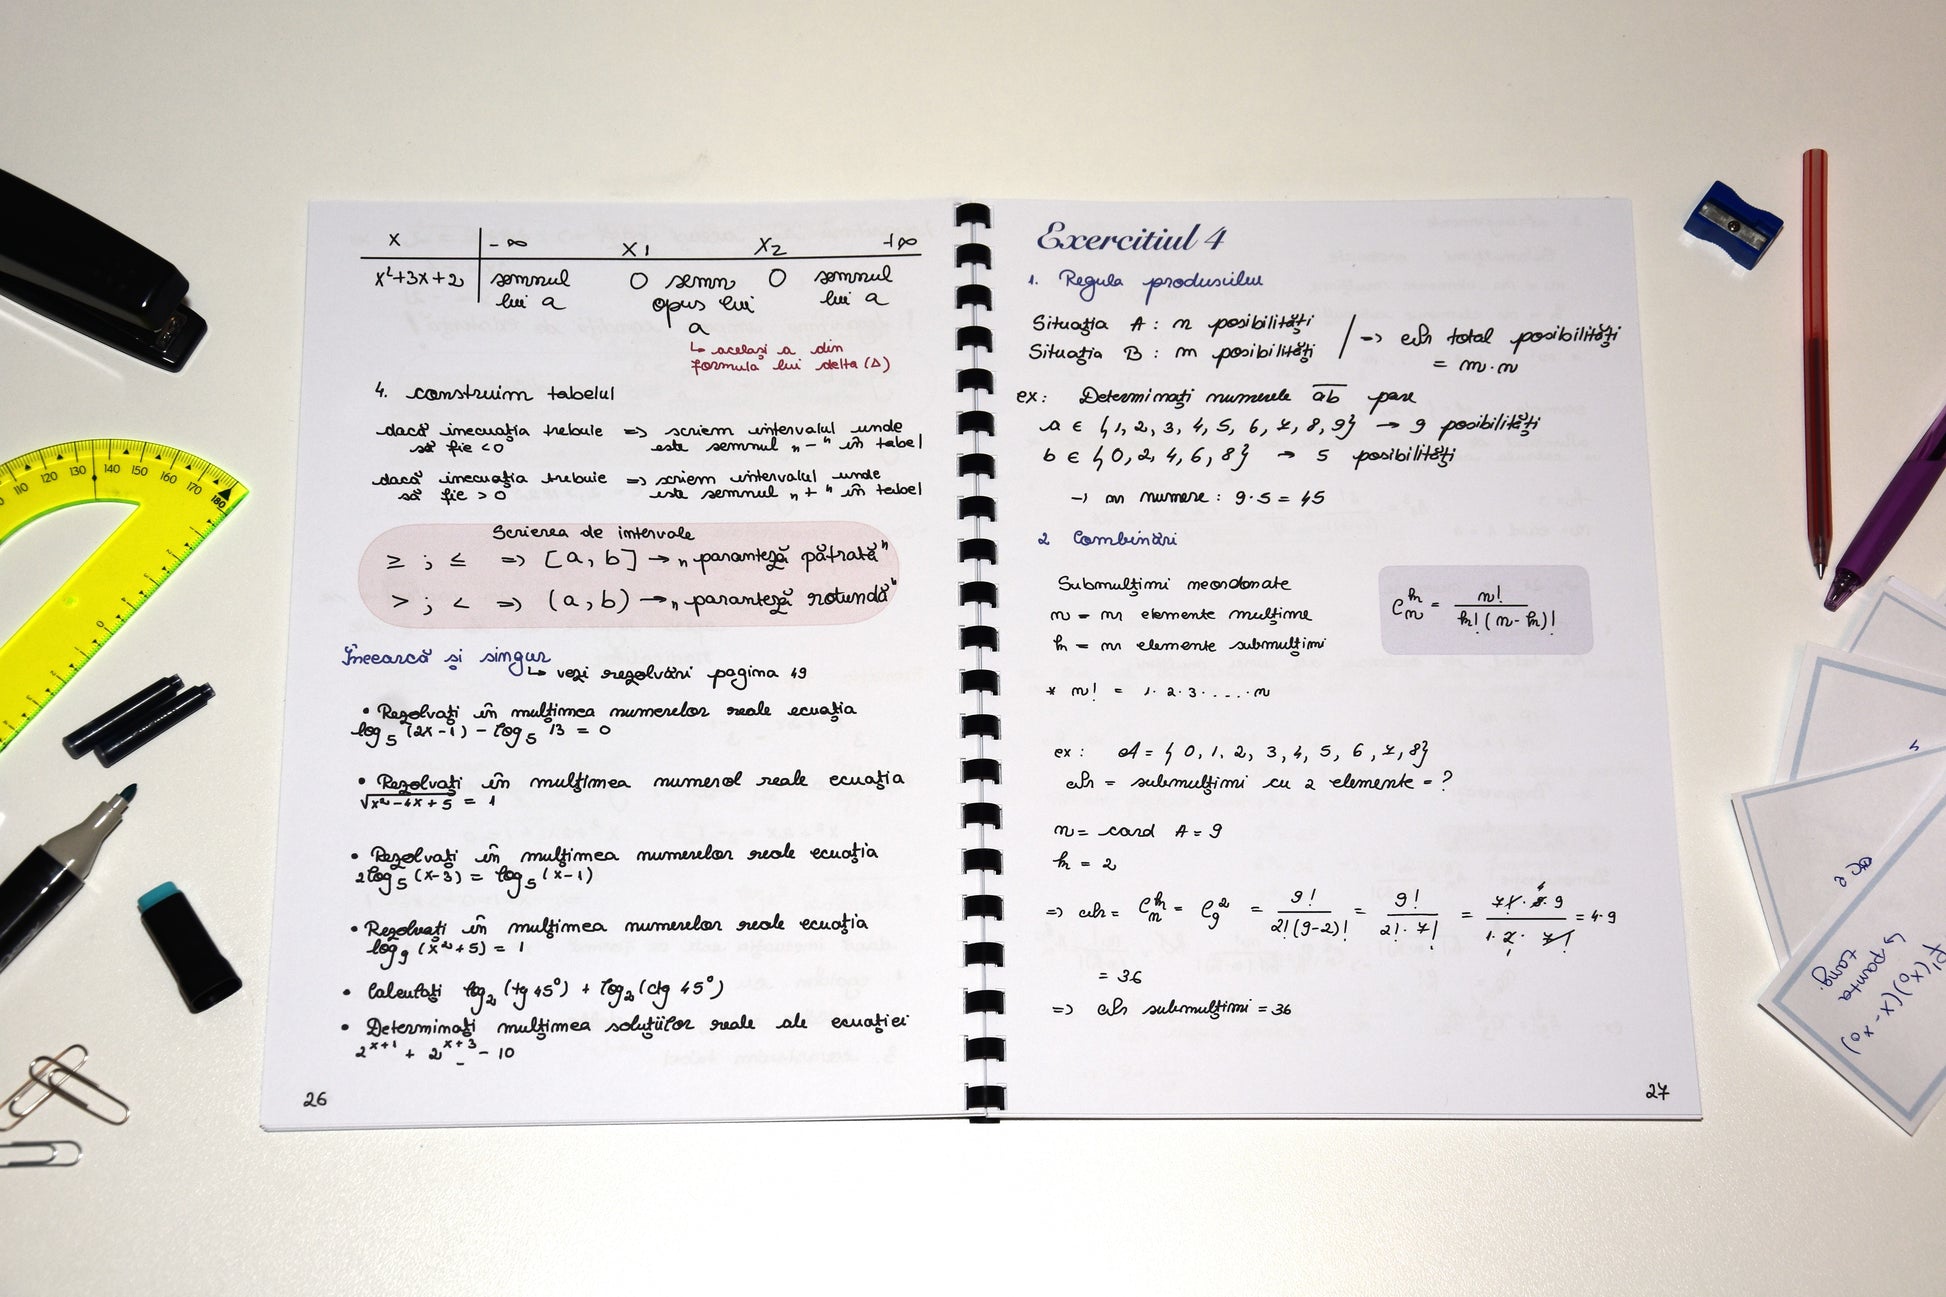 x -∞ x1 x2 +∞
x²+3x+2 semnul 0 semn 0 semnul
lui a opus lui lui a
a
↳ același a din
formula lui delta (Δ)
4. construim tabelul
dacă inecuația trebuie => scriem intervalul unde
să fie <0 este semnul „-" în tabel
dacă inecuația trebuie => scriem intervalul unde
să fie >0 este semnul „+" în tabel
Scrierea de intervale
≥ ; ≤ => [a, b] → „paranteză pătrată"
> ; < => (a, b) → „paranteză rotundă"
Încearcă și singur
↳ vezi rezolvări pagina 49
• Rezolvați în mulțimea numerelor reale ecuația
log₅ (2x-1) - log₅ 13 = 0
• Rezolvați în mulțimea numerol reale ecuația
√x²-4x+5 = 1
• Rezolvați în mulțimea numerelor reale ecuația
2log₅ (x-3) = log₅ (x-1)
• Rezolvați în mulțimea numerelor reale ecuația
log₉ (x²+5) = 1
• Calculați log₂ (tg 45°) + log₂ (ctg 45°)
• Determinați mulțimea soluțiilor reale ale ecuației
2ˣ⁺¹ + 2ˣ⁺³ = 10
26
Exercitiul 4
1. Regula produsului
Situația A: n posibilități
Situația B: m posibilități
=> nr total posibilități
= m·n
ex: Determinați numerele ab pare
a ∈ {1, 2, 3, 4, 5, 6, 7, 8, 9} → 9 posibilități
b ∈ {0, 2, 4, 6, 8} → 5 posibilități
→ nr numere: 9·5 = 45
2 Combinări
Submulțimi neordonate
n = nr elemente mulțime
k = nr elemente submulțimi
Cₙᵏ = n! / k!(n-k)!
* n! = 1·2·3·....·n
ex: A = {0, 1, 2, 3, 4, 5, 6, 7, 8}
nr = submulțimi cu 2 elemente = ?
n = card A = 9
k = 2
=> nr = Cₙᵏ = C₉² = 9! / 2!(9-2)! = 9! / 2!·7! = 7!·8·9 / 1·2·7! = 4·9
= 36
=> nr submulțimi = 36
27
f'(x₀)(x-x₀)
↳ panta
tang.